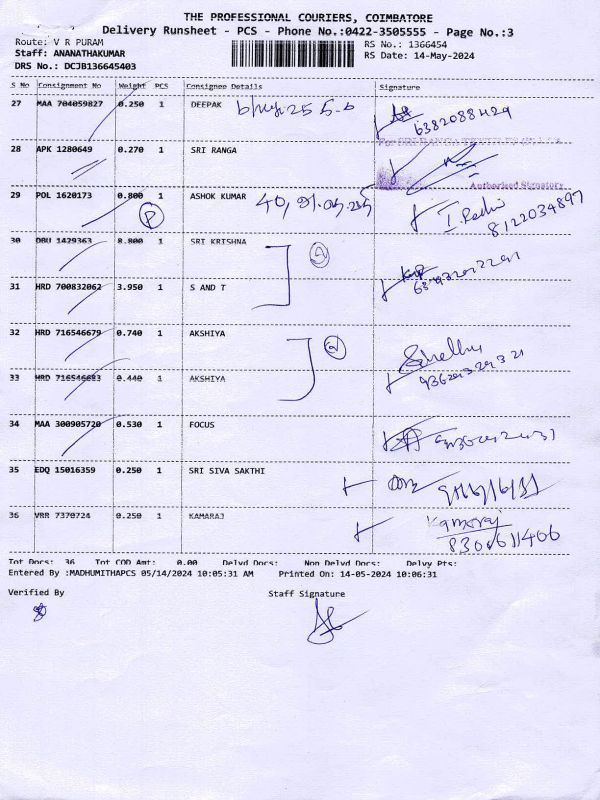 THE PROFESSIONAL COURIERS, COIMBATORE
Delivery Runsheet - PCS - Phone No.:0422-3505555 - Page No.:3
Route: V R PURAM
RS No.: 1366454
Staff: ANANATHAKUMAR
RS Date: 14-May-2024
DRS No.: DCJB136645403
S No Consignment No Weight PCS Consignee Details Signature
27 MAA 704059827 0.250 1 DEEPAK
6382088429
28 APK 1280649 0.270 1 SRI RANGA
Authorised Signatory
29 POL 1620173 0.800 1 ASHOK KUMAR
P
8122034897
30 DBU 1429363 8.800 SRI KRISHNA
31 HRD 700832062 3.950 1 S AND T
32 HRD 716546679 0.740 1 AKSHIYA
33 HRD 716546683 0.440 1 AKSHIYA
34 MAA 300905720 0.530 1 FOCUS
35 EDQ 15016359 0.250 1 SRI SIVA SAKTHI
36 VRR 7370724 0.250 1 KAMARAJ
Kamaraj
Tot Docs: 36 Tot COD Amt: 0.00 Delvd Docs: Non Delvd Docs: Delvy Pts:
Entered By :MADHUMITHAPCS 05/14/2024 10:05:31 AM Printed On: 14-05-2024 10:06:31
Verified By
Staff Signature